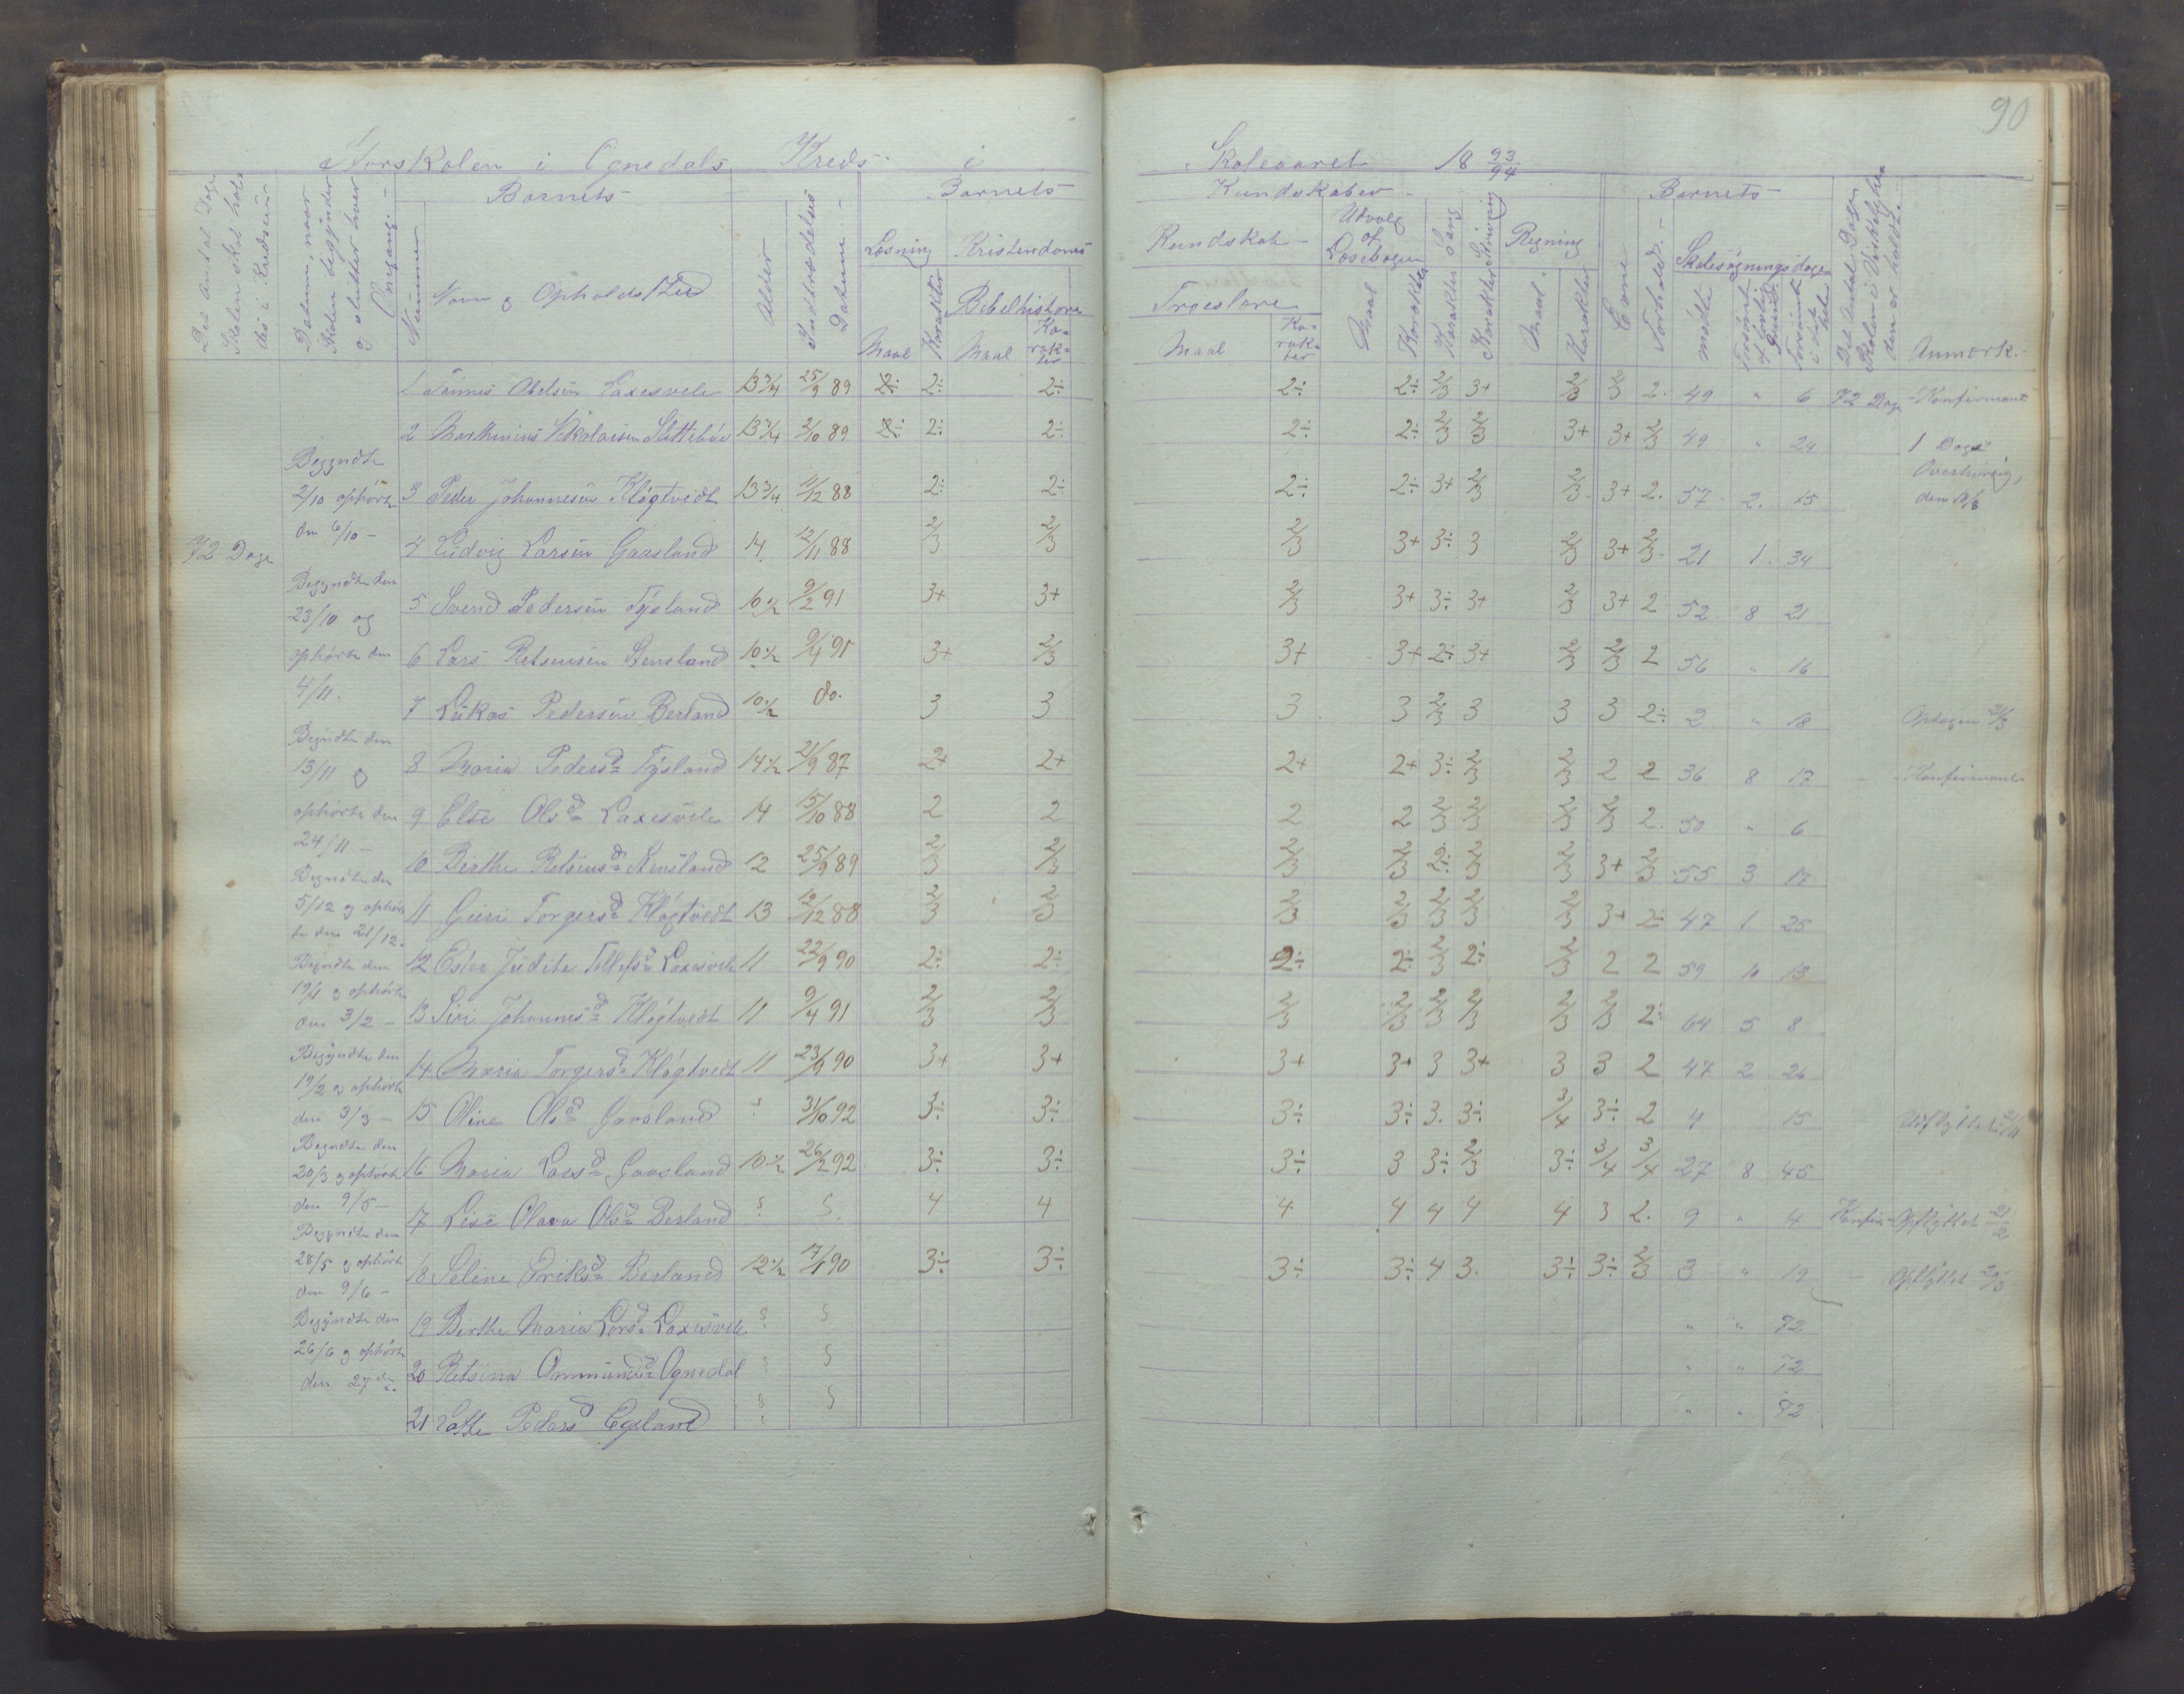 90
Storskolen i Ognedals Kreds i Skoleaaret 18 93/94
Det Antal Dage Skolen skal holdes i Kredsen
Datum, naar Skolen begynder og slutter hver Omgang.
Barnets
Nummer
Navn og Opholdssted
Alder
Indtrædelses Datum.
Barnets
Læsning
Maal
Karakter
Kristendoms
Bibelhistorie
Maal
Karakter
Kundskaber
Kundskab
Troeslære
Maal
Karakter
Udvalg af Læsebogen
Maal
Karakter
Sang
Karakter
Skrivning
Karakter
Regning
Maal
Karakter
Barnets
Evne
Forhold.
Skolesøgningsdage
mødte
Forsømt af lovlig Grund
Forsømt i det hele
Det Antal Dage Skolen i Virkeligheden er holdt.
Anmærk.
72 Dage
Begyndte
2/10 ophørte
den 6/10
Begyndte den
23/10 og
ophørte den
4/11.
Begyndte den
13/11 og
ophørte den
24/11
Begyndte den
5/12 og ophørte
den 21/12.
Begyndte den
19/1 og ophørte
den 3/2
Begyndte den
19/2 og ophørte
den 3/3
Begyndte den
20/3 og ophørte
den 9/5
Begyndte den
28/5 og ophørte
den 9/6
Begyndte den
26/6 og ophørte
den 27
1 Tønnes Abelsen Laxesvele 13 3/4 25/9 89 2÷ 2÷ 2÷ 2÷ 2÷ 2/3 3+ 2/3 2/3 2. 49 " 6 72 Dage Konfirmant
2 Marthinius Nikolaisen Slettebøe 13 3/4 2/10 89 2÷ 2÷ 2÷ 2÷ 2÷ 2/3 2/3 3+ 3+ 2/3 49 " 24 1 Dags Overhøring,
3 Peder Johannesen Kløgtvedt 13 3/4 11/12 88 2÷ 2÷ 2÷ 2÷ 3+ 2/3 2/3 3+ 2. 57 2. 15
4 Ludvig Larsen Gaasland 14 12/11 88 2/3 2/3 2/3 3+ 3÷ 3 2/3 3+ 2/3 21 1. 34
5 Svend Pedersen Tysland 10 1/2 9/2 91 3+ 3+ 2/3 3+ 3÷ 3+ 2/3 3+ 2 52 8 21
6 Lars Retsiusen Stensland 10 1/2 9/4 91 3+ 2/3 3+ 3+ 2÷ 3+ 2/3 2/3 2 56 " 16
7 Lukas Pedersen Berland 10 1/2 do. 3 3 3 3 2/3 3 3 3 2÷ 2 " 18 Optagen
8 Maria Pedersd. Tysland 14 1/2 21/9 87 2+ 2+ 2+ 2+ 3÷ 2/3 2/3 2 2 36 8 17 Konfirmant
9 Else Olsd. Laxesvele 14 15/10 88 2 2 2 2 2/3 2/3 2/3 2/3 2. 50 " 6
10 Birthe Retsiusd. Stensland 12 25/9 89 2/3 2/3 2/3 2/3 2÷ 2/3 2/3 3+ 2/3 55 3 17
11 Guri Torgersd. Kløgtvedt 13 12/12 88 2/3 2/3 2/3 2/3 2/3 2/3 2/3 3+ 2÷ 47 1. 25
12 Ester Judite Tollefsd. Laxesvele 11 22/9 90 2÷ 2÷ 2÷ 2÷ 2/3 2÷ 2/3 2 2 59 10 13
13 Siri Johannesd. Kløgtvedt 11 9/4 91 2/3 2/3 2/3 2/3 2/3 2/3 2/3 2/3 2÷ 64 5 8
14 Maria Torgersd. Kløgtvedt 11 23/9 90 3+ 3+ 3+ 3+ 3 3+ 3 3 2 47 2 26
15 Oline Olsd. Gaasland 31/10 92 3÷ 3÷ 3÷ 3÷ 3. 3÷ 3/4 3÷ 2 4 15
16 Maria Larsd. Gaasland 10 1/2 26/2 92 3÷ 3÷ 3÷ 3 3÷ 2/3 3÷ 3/4 3/4 27 8 45
17 Lise Olava Olsd. Berland 4 4 4 4 4 4 4 3 2. 9 " 4
18 Seline Eriksd. Berland 12 1/2 3÷ 3÷ 3÷ 3÷ 4 3. 3÷ 3÷ 2/3 3 " 19
19 Birthe Maria Larsd. Laxesvele " " 72
20 Retsina Ommundsd. Ognedal " " 72
21 Lotte Pedersd. Egeland " " 72